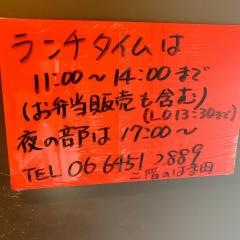 ランチタイムは
11:00～14:00まで
(お弁当販売も含む)
(LO13:30まで)
夜の部は17:00～
TEL 06 6451 2889
二階のはま田